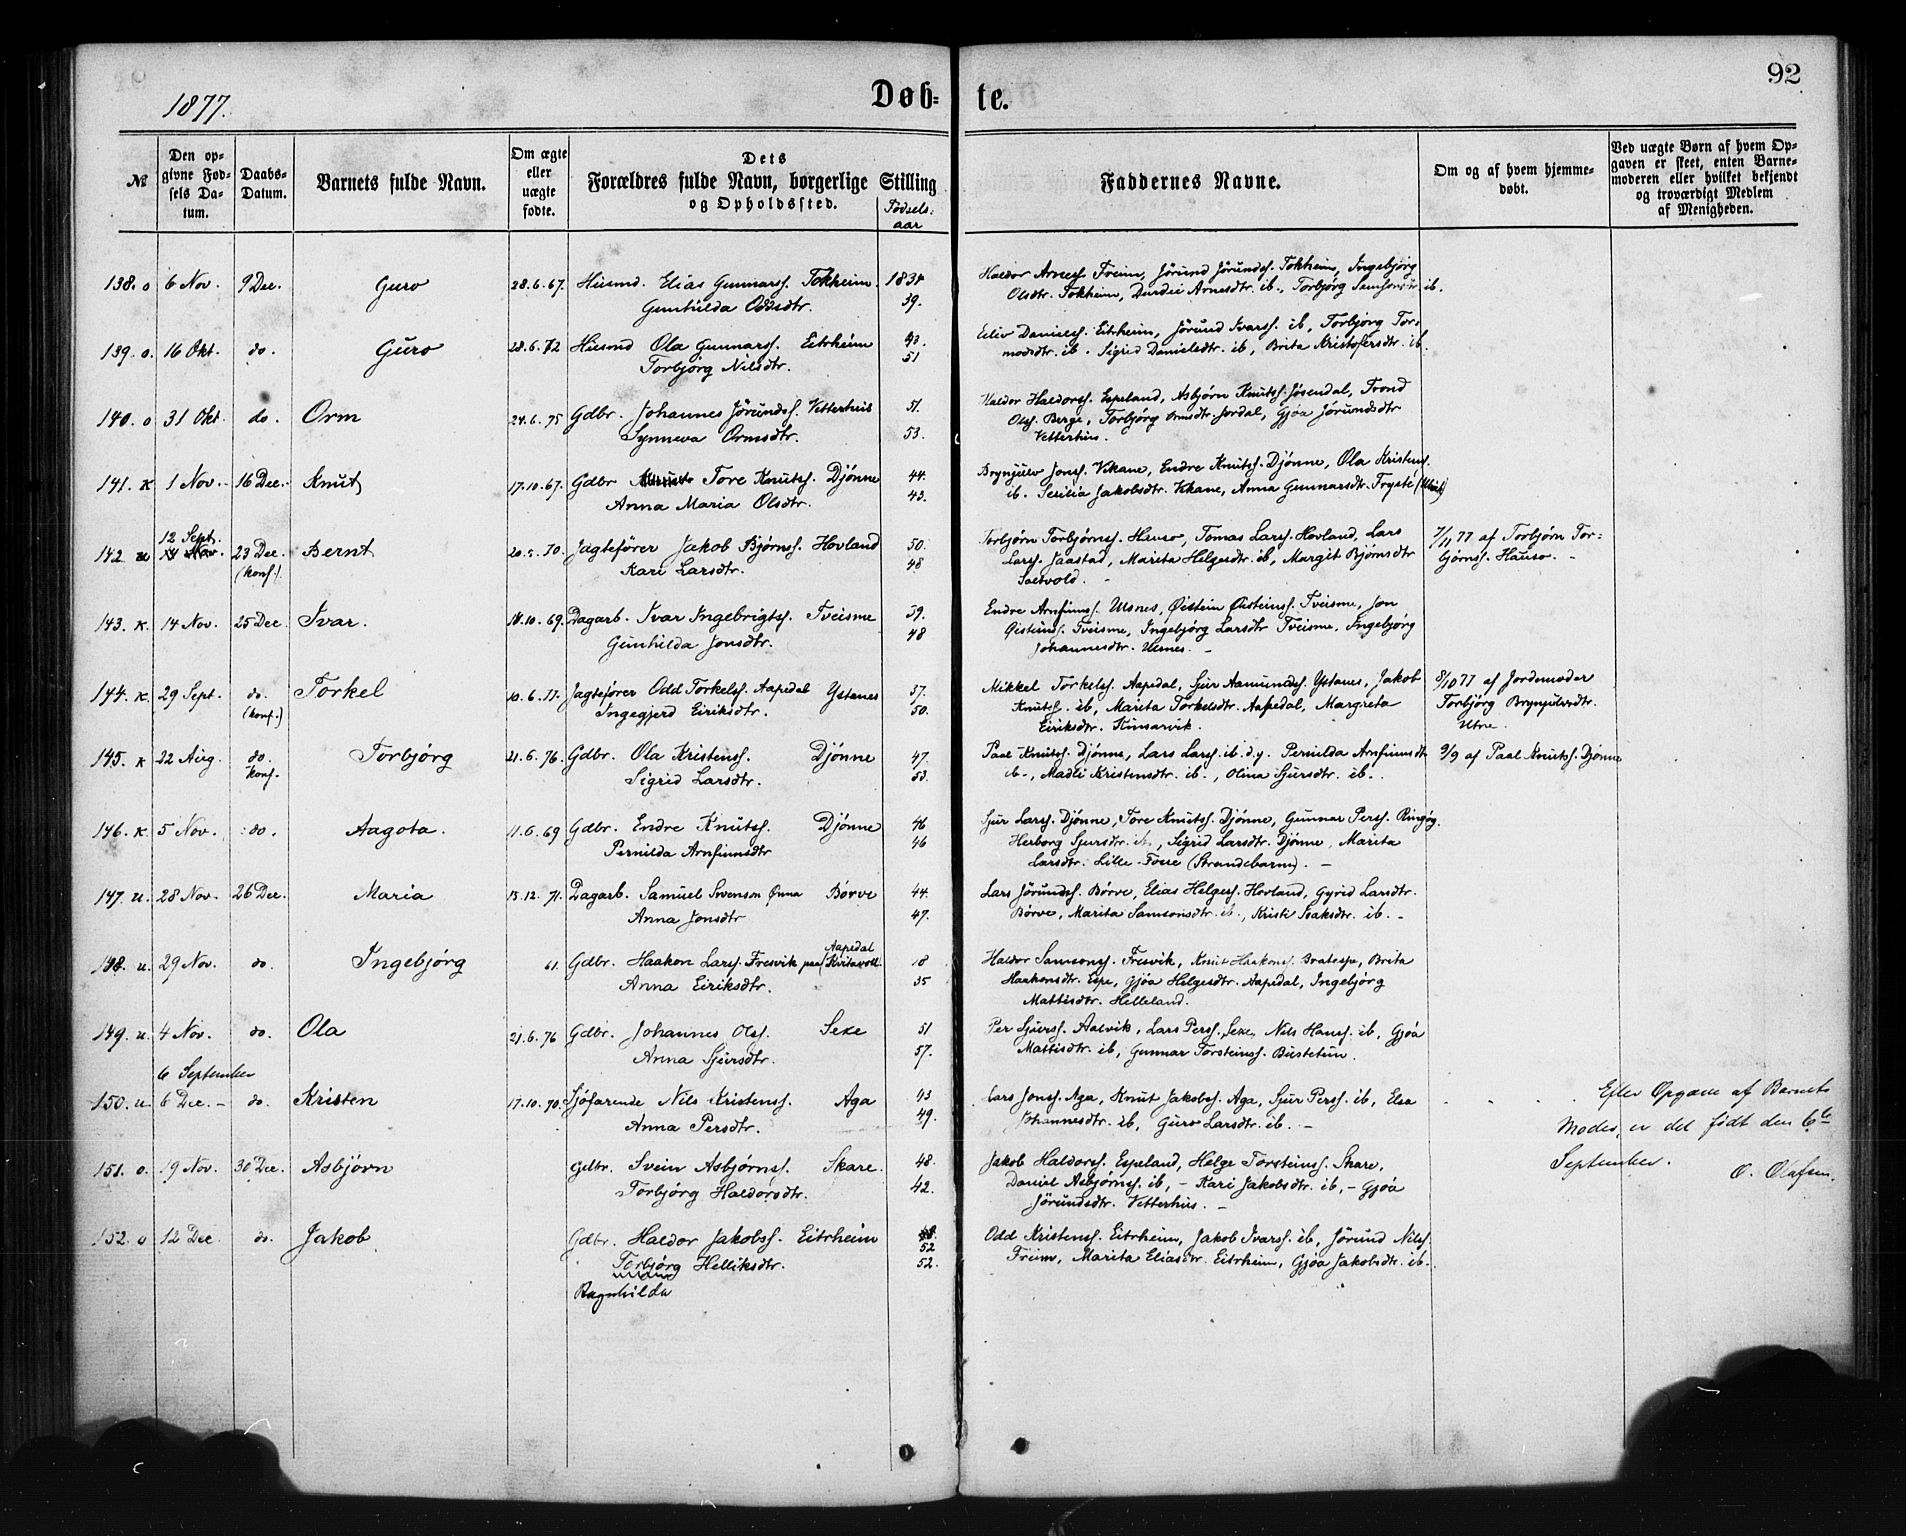 92
1877.
Døb- te.
№
Den opgivne Fødsels Datum.
Daabs-Datum.
Barnets fulde Navn.
Om ægte eller uægte fødte.
Dets Forældres fulde Navn, borgerlige Stilling og Opholdssted.
Fødselsaar
Faddernes Navne.
Om og af hvem hjemmedøbt.
Ved uægte Børn af hvem Opgaven er skeet, enten Barnemoderen eller hvilket bekjendt og troværdigt Medlem af Menigheden.
138. o 6 Nov. 9 Dec. Guro 28.6.67. Husmd. Elias Gunnarss. Tokheim. 1834
Gunhilda Oddsdtr. 39.
Haldor Arness. Freim, Jørund Jørundss. Tokheim, Ingebjørg
Olsdtr. Tokheim, Durdei Arnesdtr. ib., Torbjørg Samsonsdtr ib.
139. o. 16 Okt. do. Guro 28.6.72 Husmd Ola Gunnarss. Eitrheim 43.
Torbjørg Nilsdtr. 51
Eiliv Danielss. Eitrheim, Jørund Ivarss. ib, Torbjørg Tor-
modsdtr. ib. Sigrid Danielsdtr. ib, Brita Kristofersdtr. ib.
140. o 31 Okt. do. Orm 24.6.75 Gdbr. Johannes Jørundss. Vetterhus 51.
Synneva Ormsdtr. 53.
Haldor Haldorss. Espeland, Asbjørn Knutss. Jøsendal, Trond
Olss. Berge, Torbjørg Ormsdtr. Jordal, Gjøa Jørundsdtr
Vetterhus.
141. K 1 Nov. 16 Dec. Knut 17.10.67. Gdbr Tore Knutss. Djønne 44.
Anna Maria Olsdtr. 43.
Brynjulv Jonss. Vikane, Endre Knutss. Djønne, Ola Kristens.
ib. Sesilia Jakobsdtr. Vikane, Anna Gunnarsdtr. Tryste
12 Sept.
142 u 14 Nov. 23 Dec. (konf.). Bernt 20.5.70. Jagtefører Jakob Bjørnss. Hovland 50.
Kari Larsdtr. 48
Torbjørn Torbjørnss. Hauso, Tomas Larss. Hovland, Lars
Larss. Jaastad, Marita Helgesdtr. ib, Margit Bjørnsdtr
Saetvold. -
7/11 77 af Torbjørn Tor-
bjørnss. Hauso. -
143. K. 14 Nov. 25 Dec. Ivar. 18.10.69. Dagarb. Ivar Ingebrigtss. Tveisme 39.
Gunhilda Jonsdtr. 48
Endre Arnfinnss. Ulsnes, Øistein Øisteinss. Tveisme, Jon
Øisteinss. Tveisme, Ingebjørg Larsdtr Tveisme, Ingebjørg
Johannesdtr. Ulsnes. -
144. K. 29 Sept. do. (konf.) Torkel 10.6.77. Jagtefører Odd Torkelss. Aapedal Ystanes 37.
Ingegjerd Eiriksdtr. 50.
Mikkel Torkelss. Aapedal, Sjur Aamundss. Ystanes, Jakob
Knutss. ib, Marita Torkelsdtr. Aapedal, Margreta
Eiriksdtr. Kinsarvik.
8/10 77 af Jordemoder
Torbjørg Brynjulvsdtr.
Utne
145. K 22 Aug. do. konf. Torbjørg 21.6.76. Gdbr. Ola Kristenss. Djønne 47.
Sigrid Larsdtr. 53.
Paal Knutss. Djønne, Lars Larss. ib. d.y. Pernilda Arnfinnsdtr
ib., Madli Kristensdtr. ib., Olina Sjursdtr. ib.
9/9 af Paal Knutss. Djønne
146. K. 5 Nov. do. Aagota. 11.6.69 Gdbr. Endre Knutss. Djønne 46
Pernilda Arnfinnsdtr 46
Sjur Larss. Djønne, Tore Knutss. Djønne, Gunnar Perss. Ringøy.
Herborg Sjursdtr. ib, Sigrid Larsdtr. Djønne, Marita
Larsdtr. Lille-Fosse (Strandebarm). -
147. u. 28 Nov. 26 Dec. Maria 15.12.71. Dagarb. Samuel Svenson Børve 44.
Anna Jonsdtr 47.
Lars Jørundss. Børve, Elias Helgess. Hovland, Gyrid Larsdtr.
Børve, Marita Samsonsdtr. ib., Kristi Isaksdtr. ib. -
148. u. 29 Nov. do. Ingebjørg 61. Gdbr. Haakon Larss. Fresvik paa Aapedal Kvitavoll. 18
Anna Eiriksdtr. 35
Haldor Samsonss. Fresvik, Knut Haakonss. Bratespe, Brita
Haakonsdtr. Espe, Gjøa Helgesdtr. Aapedal, Ingebjørg
Mattisdtr. Helleland.
149. u. 4 Nov. do. Ola 21.6.76 Gdbr. Johannes Olss. Sexe 51
Anna Sjursdtr. 57.
Per Sjurss. Aalvik, Lars Perss. Sexe, Nils Hanss. ib, Gjøa
Mattisdtr. ib, Gunnar Torsteinss. Bustetun.
6 September
150. u. 6 Dec. - do. Kristen 17.10.70. Sjøfarende Nils Kristenss. Aga 43
Anna Persdtr. 49.
Lars Jonss. Aga, Knut Jakobss. Aga, Sjur Perss. ib, Elsa
Johannesdtr. ib, Guro Larsdtr. ib. -
Efter Opgave af Barnets
Moder, er det født den 6te
September. O. Olafsen.
151. o. 19 Nov. 30 Dec. Asbjørn Gdbr. Svein Asbjørnss. Skare. 48.
Torbjørg Haldorsdtr. 42.
Jakob Haldorss. Espeland, Helge Torsteinss. Skare,
Daniel Asbjørnss. ib, - Kari Jakobsdtr. ib, - Gjøa
Jørundsdtr. Vetterhus. -
152. o 12 Dec. do. Jakob Gdbr. Haldor Jakobss. Eitrheim 48.
52
Torbjørg Helliksdtr. 52.
Ragnhilda
Odd Kristenss. Eitrheim, Jakob Ivarss. ib, Jørund Nilss.
Freim, Marita Eliasdtr. Eitrheim, Gjøa Jakobsdtr. ib.